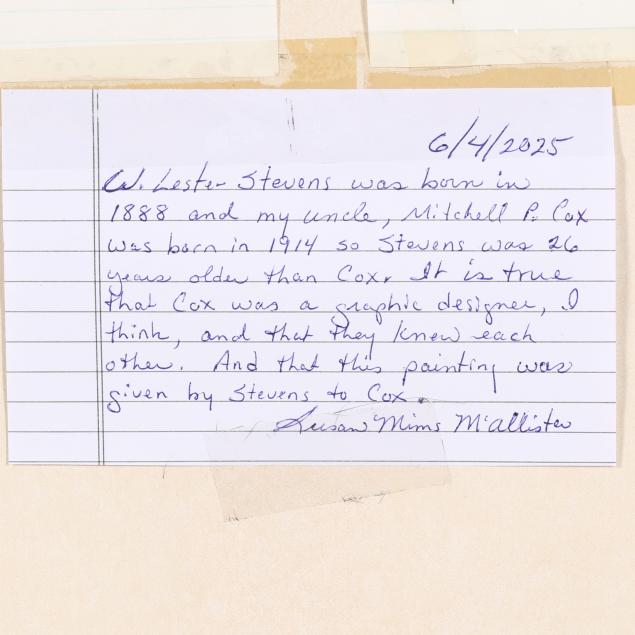 6/4/2025
W. Lester Stevens was born in
1888 and my uncle, Mitchell P. Cox
was born in 1914 so Stevens was 26
years older than Cox. It is true
that Cox was a graphic designer, I
think, and that they knew each
other. And that this painting was
given by Stevens to Cox.
Susan Mims McAllister